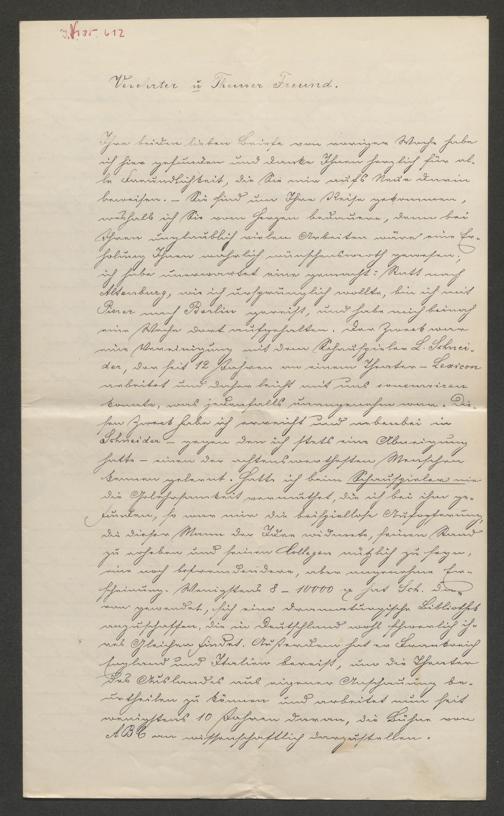 I.N. 135.612
Verehrter u Theurer Freund.
Ihre beiden lieben Briefe von voriger Woche habe
ich hier gefunden und danke Ihnen herzlich für al-
le Freundlichkeit, die Sie mir aufs Neue darin
beweisen. – Sie sind um Ihre Reise gekommen,
weshalb ich Sie von Herzen bedauere, denn bei
Ihren unglaublich vielen Arbeiten wäre eine Er-
holung Ihnen wahrlich wünschenswerth gewesen;
ich habe unerwartet eine gemacht: Statt nach
Altenburg, wie ich ursprünglich wollte, bin ich mit
Pierer nach Berlin gereist, und habe mich beinah
eine Woche dort aufgehalten. Der Zweck war
eine Vereinigung mit dem Schauspieler L. Schnei-
der, der seit 12 Jahren an einem Theater-Lexicon
arbeitet und daher leicht mit uns
konnte, was jedenfalls unangenehm war. Die-
sen Zweck habe ich erreicht und nebenbei in
Schneider – gegen den ich stets eine Abneigung
hatte – einen der achtenswerthesten Menschen
kennen gelernt. Hatte ich beim Schauspieler nie
die Gelehrsamkeit vermuthet, die ich bei ihm ge-
funden, so war mir die beispiellose Aufopferung,
die dieser Mann der Idee widmete, seinen Stand
zu erheben und seinen Collegen nützlich zu seyn,
eine noch befremdendere, aber angenehme Er-
scheinung. Wenigstens 8 – 10000 hat Sch. dar-
an gewendet, sich eine dramaturgische Bibliothek
anzuschaffen, die in Deutschland wohl schwerlich ih-
res Gleichen findet. Außerdem hat er Frankreich
England und Italien bereist, um die Theater
des Auslandes aus eigener Anschauung be-
urtheilen zu können und arbeitet nun seit
wenigstens 10 Jahren daran, die Bühne von
ABC an wissenschaftlich darzustellen.